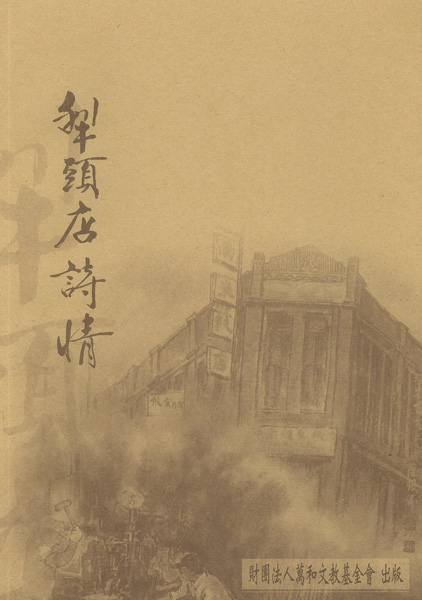 犁頭店詩情
財團法人萬和文教基金會 出版